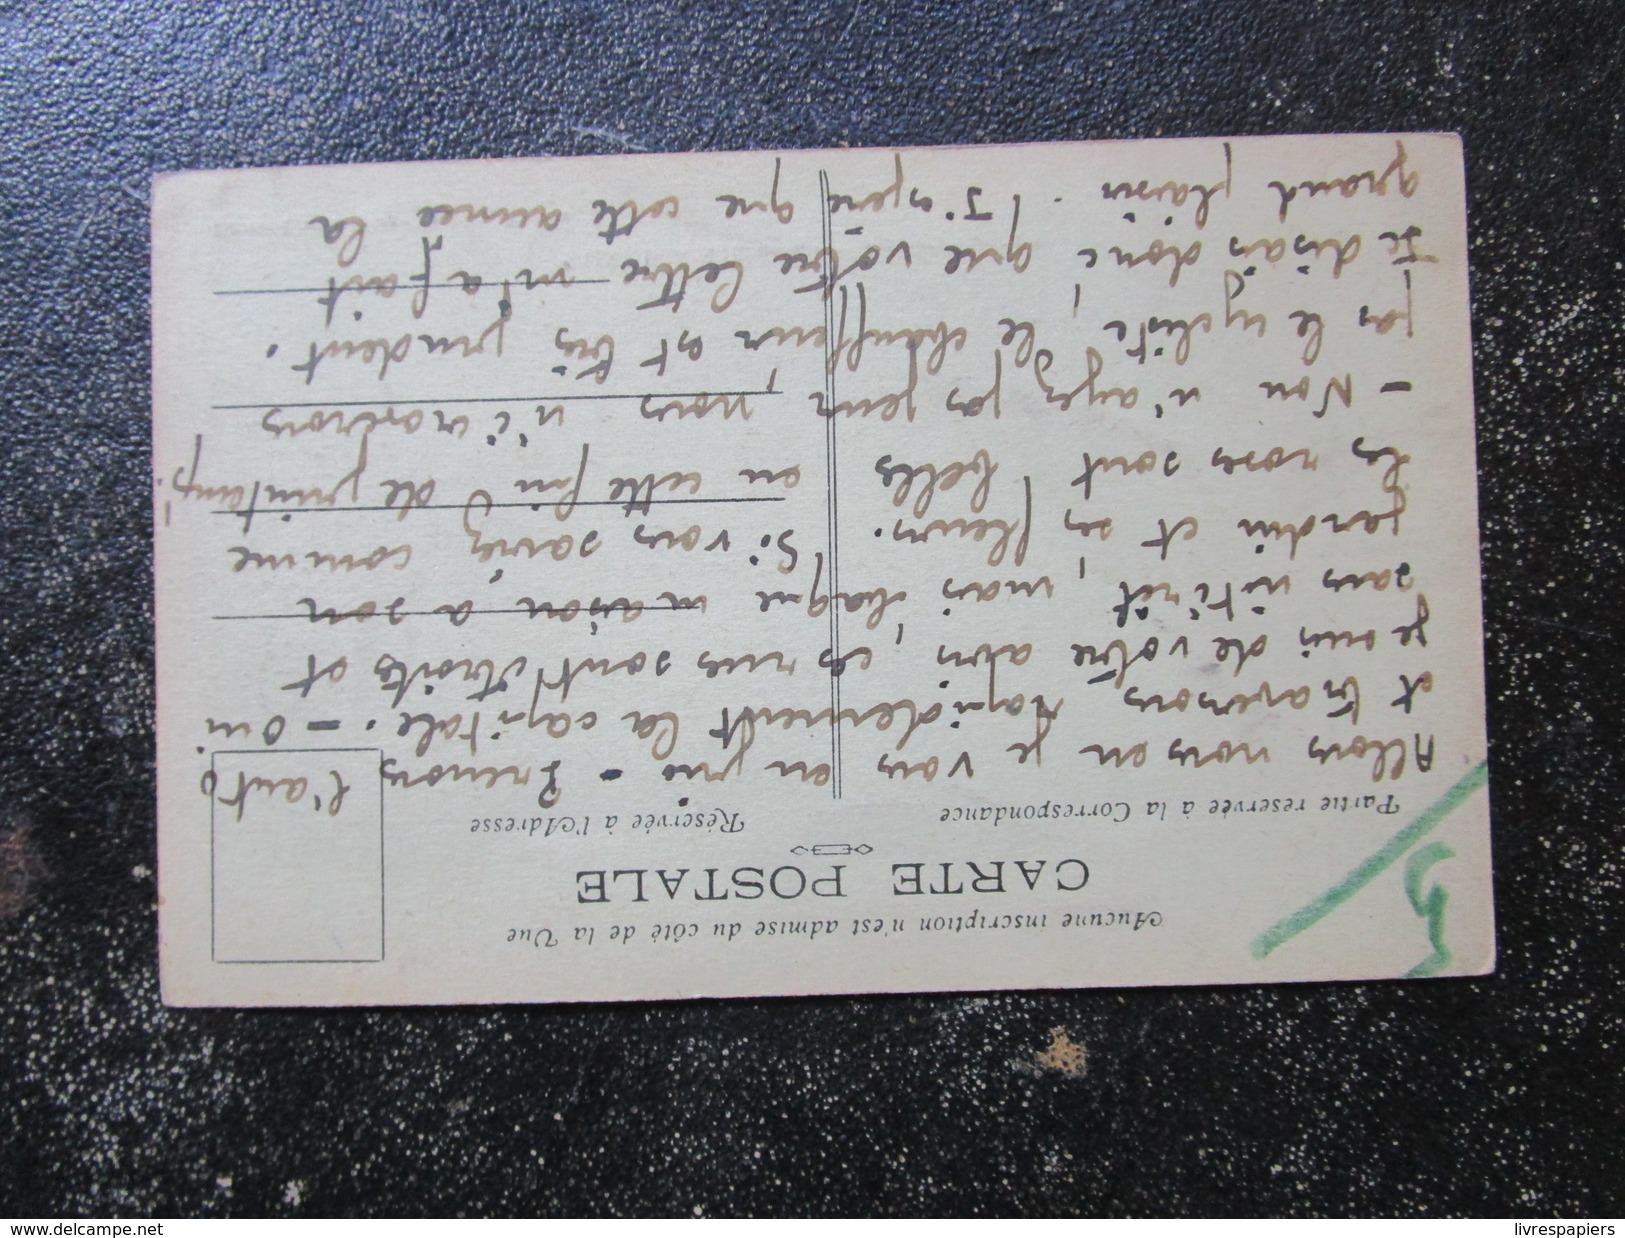 Aucune inscription n'est admise du côté de la Vue
CARTE POSTALE
Partie reservée à la Correspondance
Réservée à l'Adresse
5
Allons nous en je vous en prie - Prenons l'auto
et traversons rapidement la capitale. - Oui
je suis de votre avis, ces rues sont étroites et
sans intérêt, mais chaque maison a son
jardin et ses fleurs. Si vous saviez comme
les roses sont belles en cette fin de printemps!
- Non n'ayez pas peur, nous n'écraserons
pas le cycliste, le chauffeur est très prudent.
Je disais donc que votre lettre m'a fait
grand plaisir. J'espère que cette année la
www.delcampe.net
livrespapiers